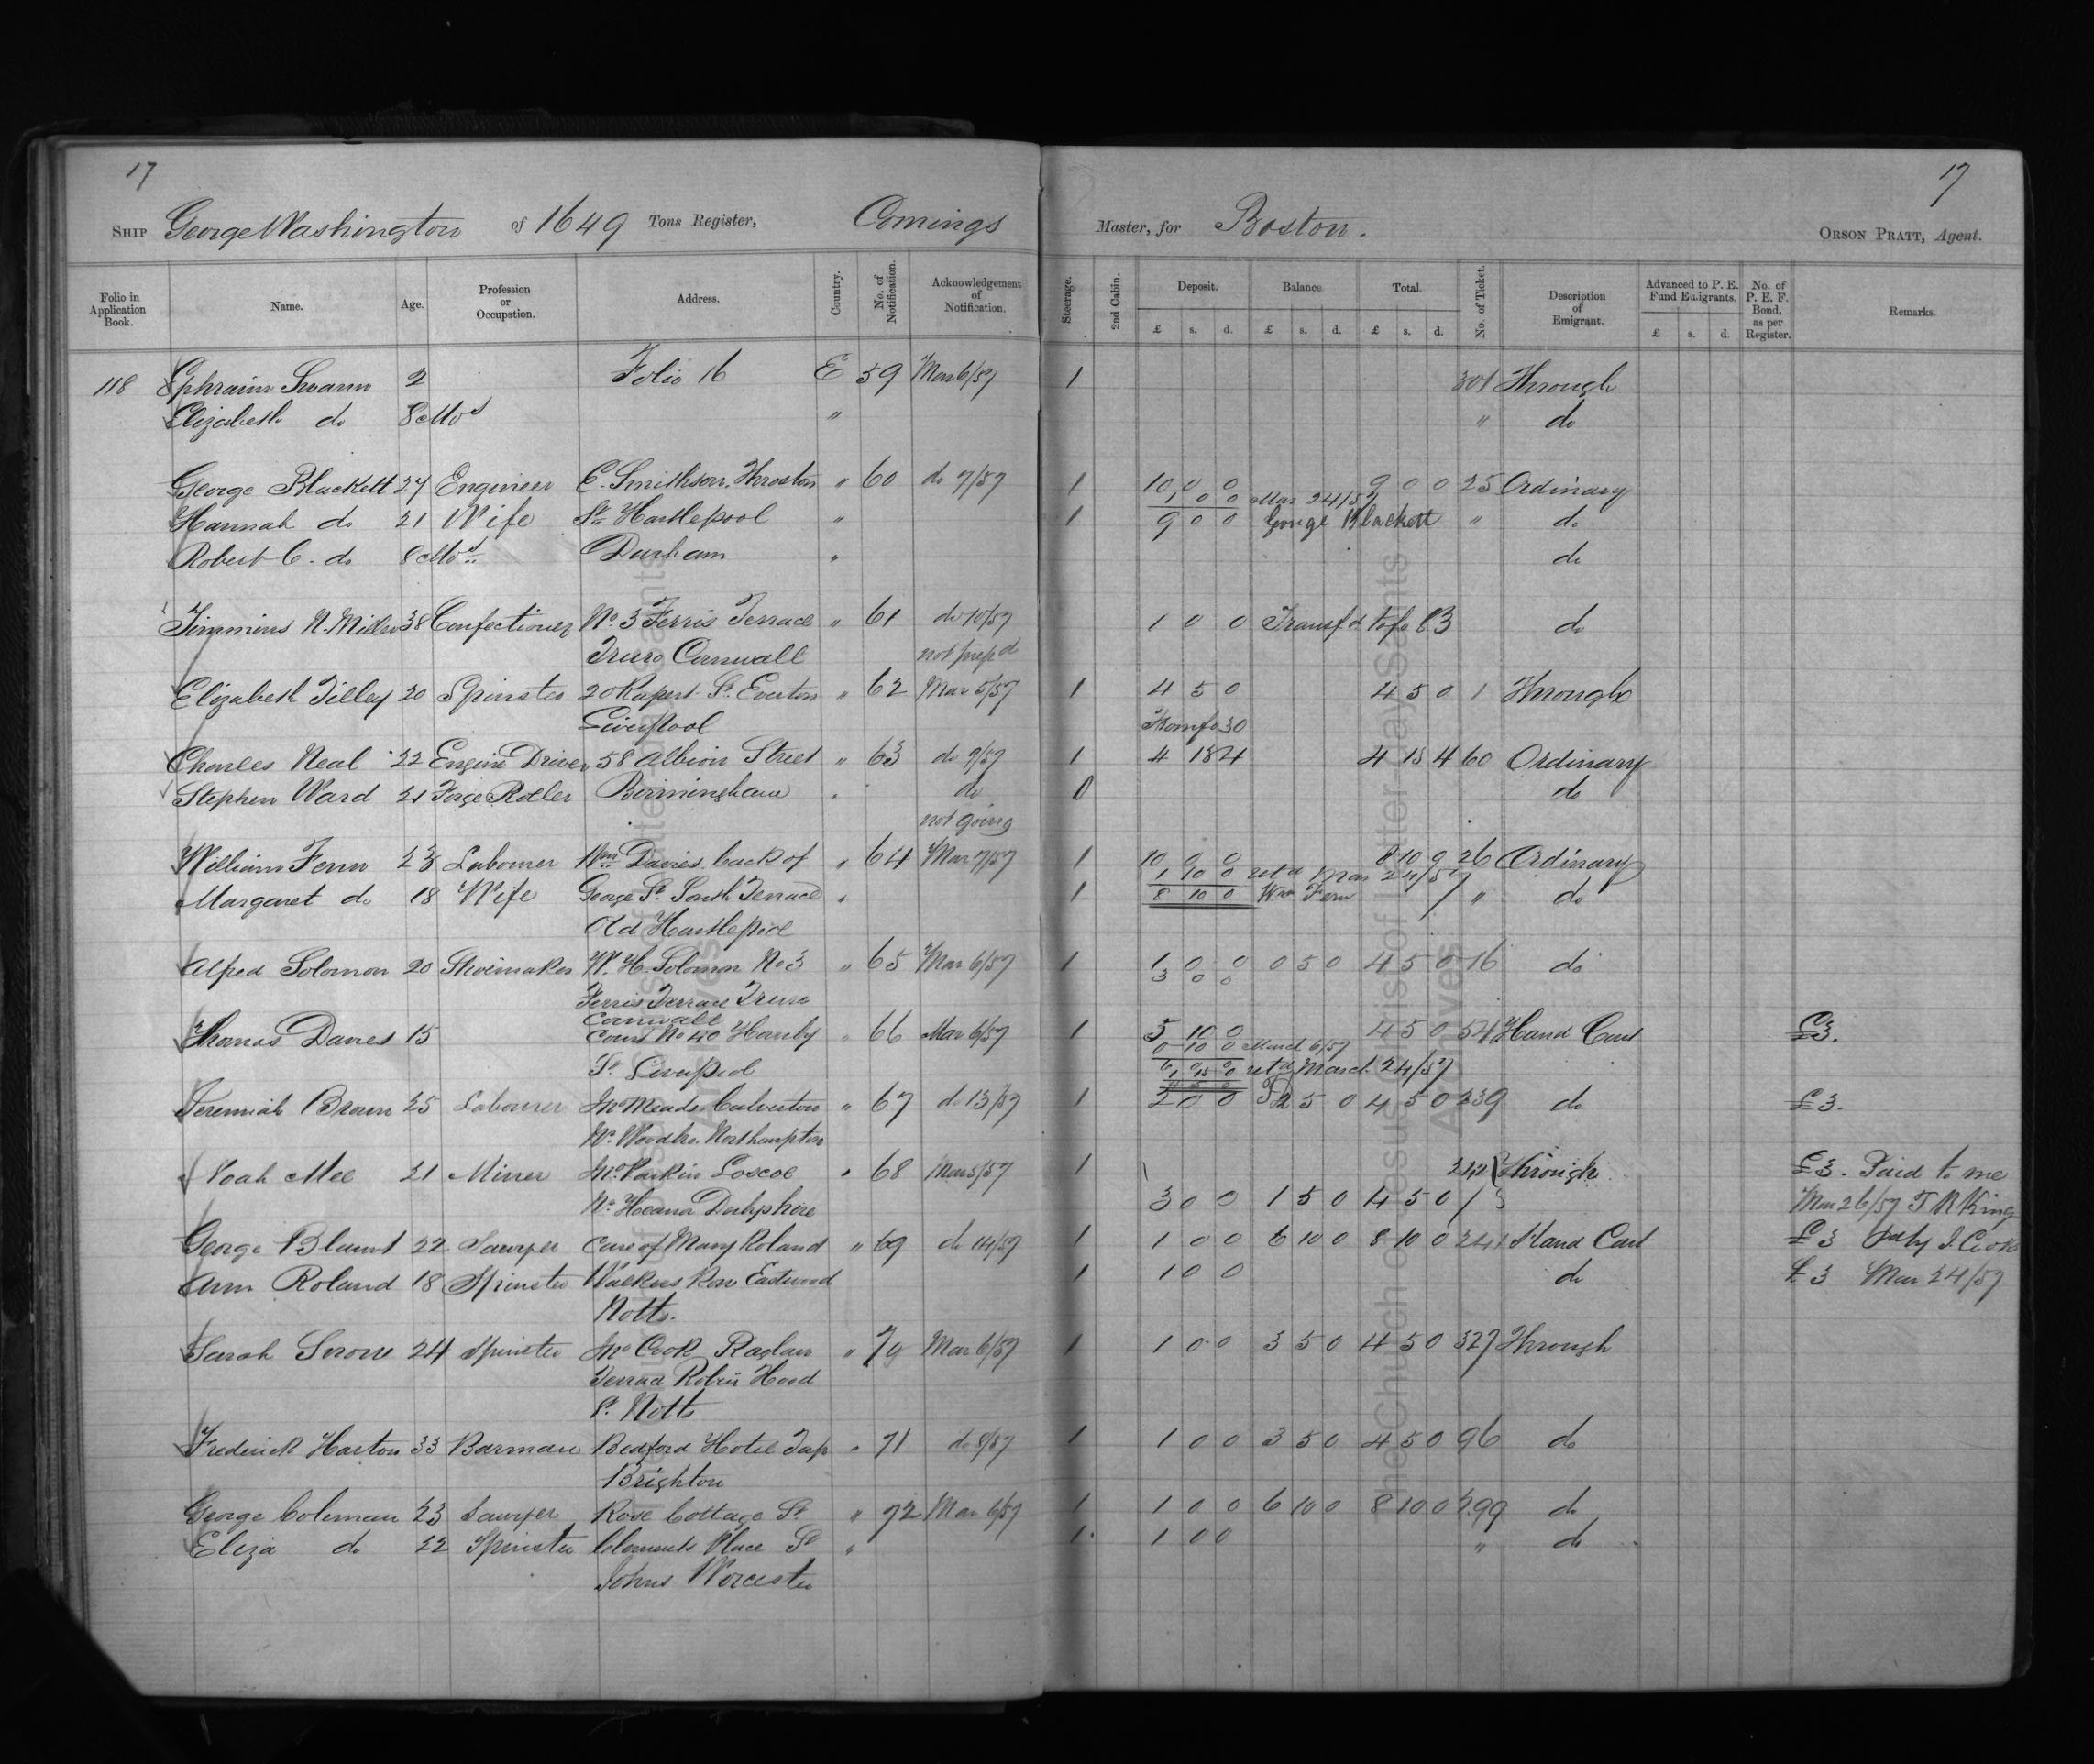 17
17
SHIP George Washington of 1649 Tons Register, Comings Master, for Boston. ORSON PRATT, Agent.
Folio in Application Book. Name. Age. Profession or Occupation. Address. Country. No. of Notification. Acknowledgement of Notification. Steerage. 2nd Cabin. Deposit. Balance Total. No. of Ticket. Description of Emigrant. Advanced to P. E. Fund Emigrants. No. of P. E. F. Bond, as per Register. Remarks.
£ s. d. £ s. d. £ s. d. £ s. d.
118 Ephraim Swann 2 Folio 16 E 59 Mar 6/57 1 301 Through
Elizabeth do 8 Mos " " do
George Blackett 27 Engineer C. Smithson, Throston " 60 do 7/57 1 10 0 0 9 0 0 25 Ordinary
1 0 0 Mar 24/57
Hannah do 21 Wife St Hartlepool " 1 9 0 0 George Blackett " do
Robert C. do 8 Mos Durham " do
Timmins N. Miller 38 Confectioner No 3 Ferris Terrace " 61 do 10/57 1 0 0 Transfd to fo 83 do
Truro Cornwall not prepd
Elizabeth Tilley 20 Spinster 20 Rupert St. Everton " 62 Mar 5/57 1 4 5 0 4 5 0 1 Through
Liverpool From fo 30
Charles Neal 22 Engine Driver 58 Albion Street " 63 do 9/57 1 4 18 4 4 18 4 60 Ordinary
Stephen Ward 21 Forge Roller Birmingham " do 0 do
not going
William Fern 23 Labourer Wm Davies, back of " 64 Mar 7/57 1 10 0 0 8 10 0 26 Ordinary
1 10 0 retd Mar 24/57
Margaret do 18 Wife George St. South Terrace " 1 8 10 0 Wm Fern " do
Old Hartlepool
Alfred Solomon 20 Shoemaker W. H. Solomon No 3 " 65 Mar 6/57 1 1 0 0 0 5 0 4 5 0 16 do
3 0 0
Ferris Terrace Truro
Cornwall
Thomas Davies 15 Court No 40 Hornby " 66 Mar 6/57 1 5 10 0 4 5 0 54 Hand Cart £3.
0 10 0 March 6/57
St Liverpool 1 15 0 retd March 24/57
4 5 0
Jeremiah Brown 25 Labourer Jno Meads Calverton " 67 do 13/57 1 2 0 0 2 5 0 4 5 0 239 do £3.
Northampton
Noah Mee 21 Miner Jno Parkin Loscoe " 68 Mar 5/57 1 242 Through £3. Paid to me
Nr Heanor Derbyshire 3 0 0 1 5 0 4 5 0 Mar 26/57 T R King
George Blount 22 Sawyer Care of Mary Roland " 69 do 14/57 1 1 0 0 6 10 0 8 10 0 241 Hand Cart £3 Pd by J. Cook
Ann Roland 18 Spinster Walkers Row Eastwood 1 1 0 0 do £3 Mar 24/57
Notts.
Sarah 24 Spinster Jno Cook Raglan " 70 Mar 6/57 1 1 0 0 3 5 0 4 5 0 327 Through
Terrace Robin Hood
St. Notts
Frederick Harton 33 Barman Bedford Hotel Tap " 71 do 8/57 1 1 0 0 3 5 0 4 5 0 96 do
Brighton
George Coleman 23 Sawyer Rose Cottage St " 72 Mar 6/57 1 1 0 0 6 10 0 8 10 0 299 do
Eliza do 22 Spinster Clements Place St " 1 1 0 0 " do
Johns Worcester